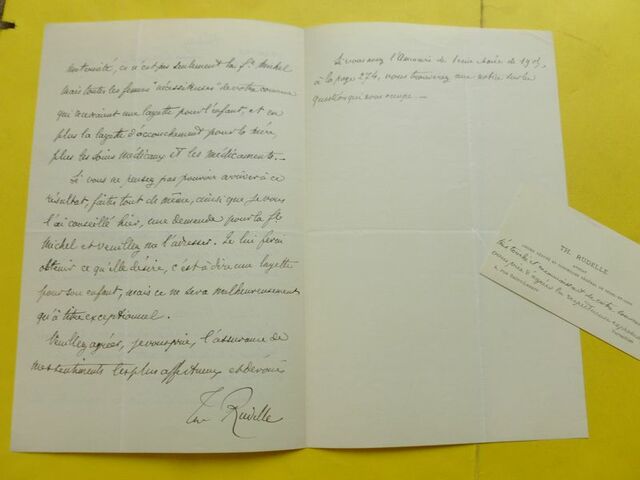 maternité, ce n'est pas seulement la fe Michel
mais toutes les femmes "nécessiteuses" de votre commune
qui recevraient une layette pour l'enfant, et en
plus la layette d'accouchement pour la mère,
plus les soins médicaux et les médicaments. –
Si vous ne pensez pas pouvoir arriver à ce
résultat, faites tout de même, ainsi que je vous
l'ai conseillé hier, une demande pour la fe
Michel et veuillez me l'adresser. Je lui ferai
obtenir ce qu'elle désire, c'est à dire une layette
pour son enfant, mais ce ne sera malheureusement
qu'à titre exceptionnel.
Veuillez agréer, je vous prie, l'assurance de
mes sentiments les plus affectueux et dévoués
Th Rudelle
Si vous avez l'Annuaire de Seine-et-Oise de 1905,
à la page 274, vous trouverez une notice sur la
question qui vous occupe. –
TH. RUDELLE